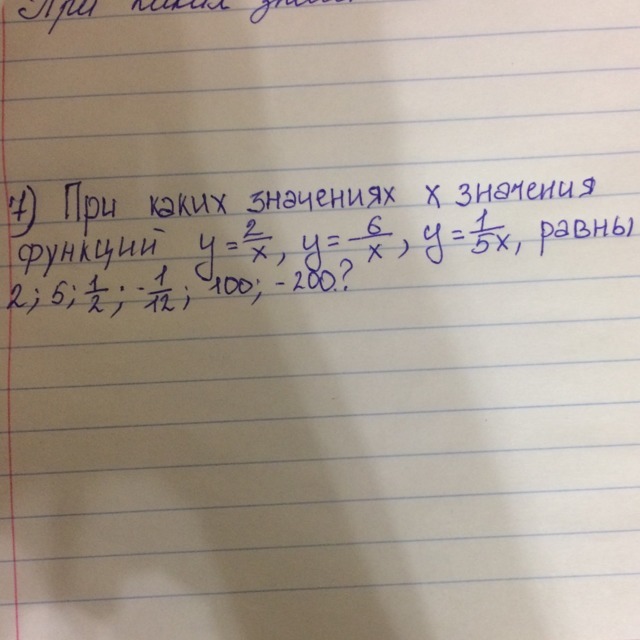 При каких
7) При каких значениях x значения
функций y = 2/x, y = - 6/x, y = 1/5x, равны
2; 5; 1/2; -1/12; 100; -200?